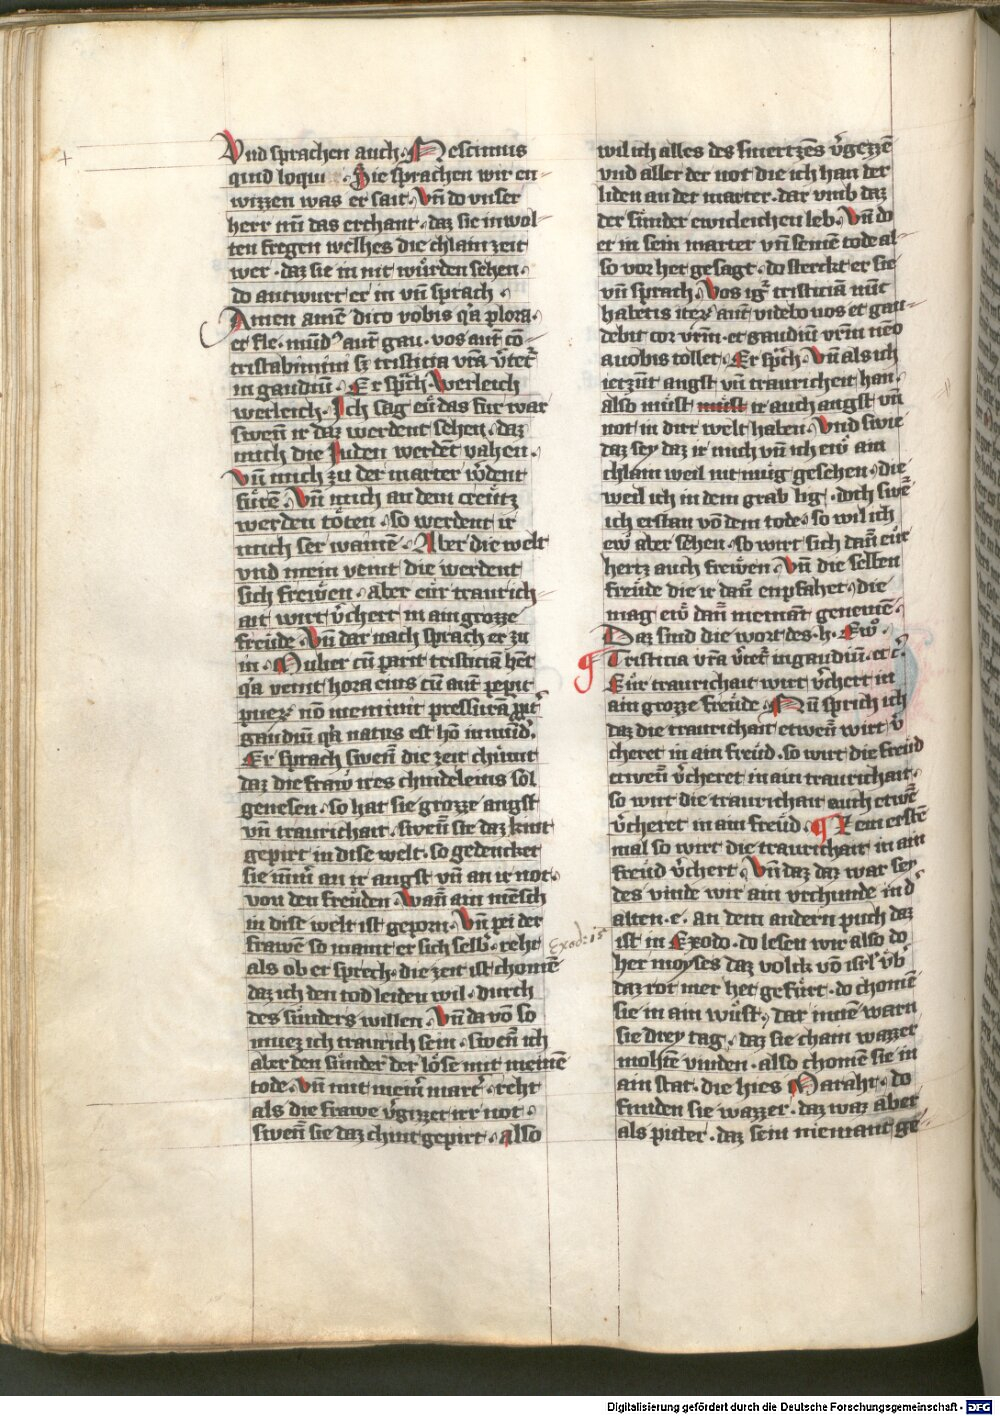 Vnd sprachen auch · Nescimus
quid loqui · Sie sprachen wir en
wizzen was er sait · Vn̄ do vnser
herr nu᷑ das erchant · daz sie in wol
ten fregen welhes die chlain zeit
wer · daz sie in nit wu᷑rden sehen ·
do antwurt er in vn̄ sprach ·
Amen ame᷑ dico vobis q̄a plora·
et fle · mu᷑d᷒ aut᷑ gau · vos aut᷑ co᷑
tristabimini sꝫ tristicia vr̄a v᷑tet᷑
in gaudiu᷑ · Er sp᷑ch · Werleich
werleich · Ich sag eu᷑ das fur war
swen̄ ir daz werdent sehen · daz
mich die Juden werde᷑t vahen ·
Vn̄ mich zu der marter w᷑dent
fu᷑re᷑ · Vn̄ mich an dem creu᷑tz
werden to᷑ten · so werdent ir
mich ser waine᷑ · Aber die welt
vnd mein veint die werdent
sich frewen · aber eur traurich
ait wirt v᷑chert in ain grozze
freude · Vn̄ dar nach sprach er zu
in · Mulier cu᷑ parit tristicia᷑ h᷑et
q̄a venit hora eius cu᷑ aut᷑ pepit
pueꝝ no᷑ meminit pressura᷑ ꝓpt᷑
gaudiu᷑ q̄a natus est ho᷑ in mu᷑d᷒·
Er sprach swen̄ die zeit chu᷑mt
daz die fraw ires chindeleins sol
genesen · so hat sie grozze angst
vn̄ traurichait · swen̄ sie daz kint
gepirt in dise welt · so gedencket
sie ni᷑m᷑ an ir angst vn̄ an ir not ·
von den freuden · Wan̄ ain me᷑sch
in dise welt ist geporn · Vn̄ pei der
frawe᷑ so maint er sich selb᷑ · reht
als ob er sprech · die zeit ist chome᷑
daz ich den tod leiden wil · durch
des su᷑nders willen · Vn̄ da vo᷑ so
muez ich traurich sein · swen̄ ich
aber den su᷑nder der lo᷑se mit meine᷑
tode · Vn̄ mit mein᷑ mart᷑ · reht
als die frawe v᷑gizzet irr not ·
swen̄ sie daz chint gepirt · also
Exod: 15
wil ich alles des smertzens v᷑gezze᷑
vnd aller der not die ich han der
liden an der marter · dar vmb daz
der su᷑nder ewicleichen leb · Vn̄ do
er in sein marter vn̄ seine᷑ tode al
so vor her gesagt · do sterckt er sie
vn̄ sprach · Vos ig᷑ tristicia᷑ nu᷑c
habetis iteꝝ aut᷑ videbo uos et gau
debit cor vr̄m · et gaudiu᷑ vr̄m ne᷑o
a uobis tollet · Er sp᷑ch · Vn̄ als ich
ietzu᷑t angst vn̄ trauricheit han ·
also mu᷑st mu᷑st ir auch angst vn̄
not in dirr welt haben · Vnd swie
daz sey daz ir mich vn̄ ich ew᷑ ain
chlain weil nit mu᷑g gesehen · die
weil ich in dem grab lig · doch swe᷑
ich erstan vo᷑ dem tode · so wil ich
ew᷑ aber sehen · so wirt sich dan̄ eur
hertz auch frewen · Vn̄ die selben
freude die ir dan̄ enpfahet · die
mag ew᷑ dan̄ niema᷑t geneme᷑ ·
Daz sind die wort des · h · Ew᷑ ·
Tristicia vr̄a v᷑tet᷑ in gaudiu᷑ · et c᷑
Eur traurichait wirt v᷑chert in
ain grozze freude · Nu᷑ sprich ich
daz die traurichait etwen̄ wirt v᷑
cheret in ain freud · so wirt die freud
etwen̄ v᷑cheret in ain traurichait ·
so wirt die traurichait auch etwe᷑
v᷑cheret in ain freud · Zem erste᷑
mal so wirt die traurichait in ain
freud v᷑chert · Vn̄ daz daz war sey
des vinde wir ain vrchunde in d᷑
alten · e · an dem andern puch daz
ist in Exodo · do lesen wir also do
her moyses daz volck vo᷑ isrl᷑ v᷑b᷑
daz rot mer het gefu᷑rt · do chome᷑
sie in ain wu᷑st · dar inne᷑ warn
sie drey tag · daz sie chain wazzer
mohte᷑ vinden · also chome᷑ sie in
ain stat · die hies Maraht · do
funden sie wazzer · daz waz aber
als pitter · daz sein niemant ge
Digitalisierung gefördert durch die Deutsche Forschungsgemeinschaft - DFG